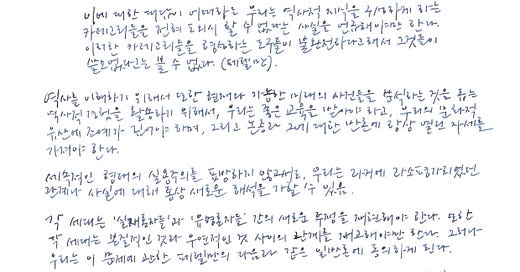 이에 대한 대답이 어떠하든 우리는 역사적 지식을 구성하게 하는
카테고리들을 전혀 도외시 할 수 없다는 사실을 연구해야만 한다.
이러한 카테고리들을 형성하는 도구들이 불완전하다고해서 그것들이
쓸모없다고는 볼 수 없다. (페렐만).
역사를 이해하기 위해서 또한 현재나 가능한 미래의 사건들을 분석하는 것을 돕는
역사적 경험을 활용하기 위해서, 우리는 좋은 교육을 받아야 하고, 우리의 문화적
유산에 조예가 깊어야 하며, 그리고 논증과 그에 대한 반론에 항상 열린 자세를
가져야 한다.
세속적인 형태의 실용주의를 표방하지 않고서도, 우리는 과거에 과소평가되었던
관계나 사실에 대해 통상 새로운 해석을 가할 수 있음.
각 세대는 '실재론자들'과 '유명론자들' 간의 새로운 투쟁을 재현해야 한다. 또한
각 세대는 본질적인 것과 우연적인 것 사이의 관계를 재고해야만 한다. 그러나
우리는 이 문제에 관한 페렐만의 다음과 같은 일반론에 동의하게 된다.